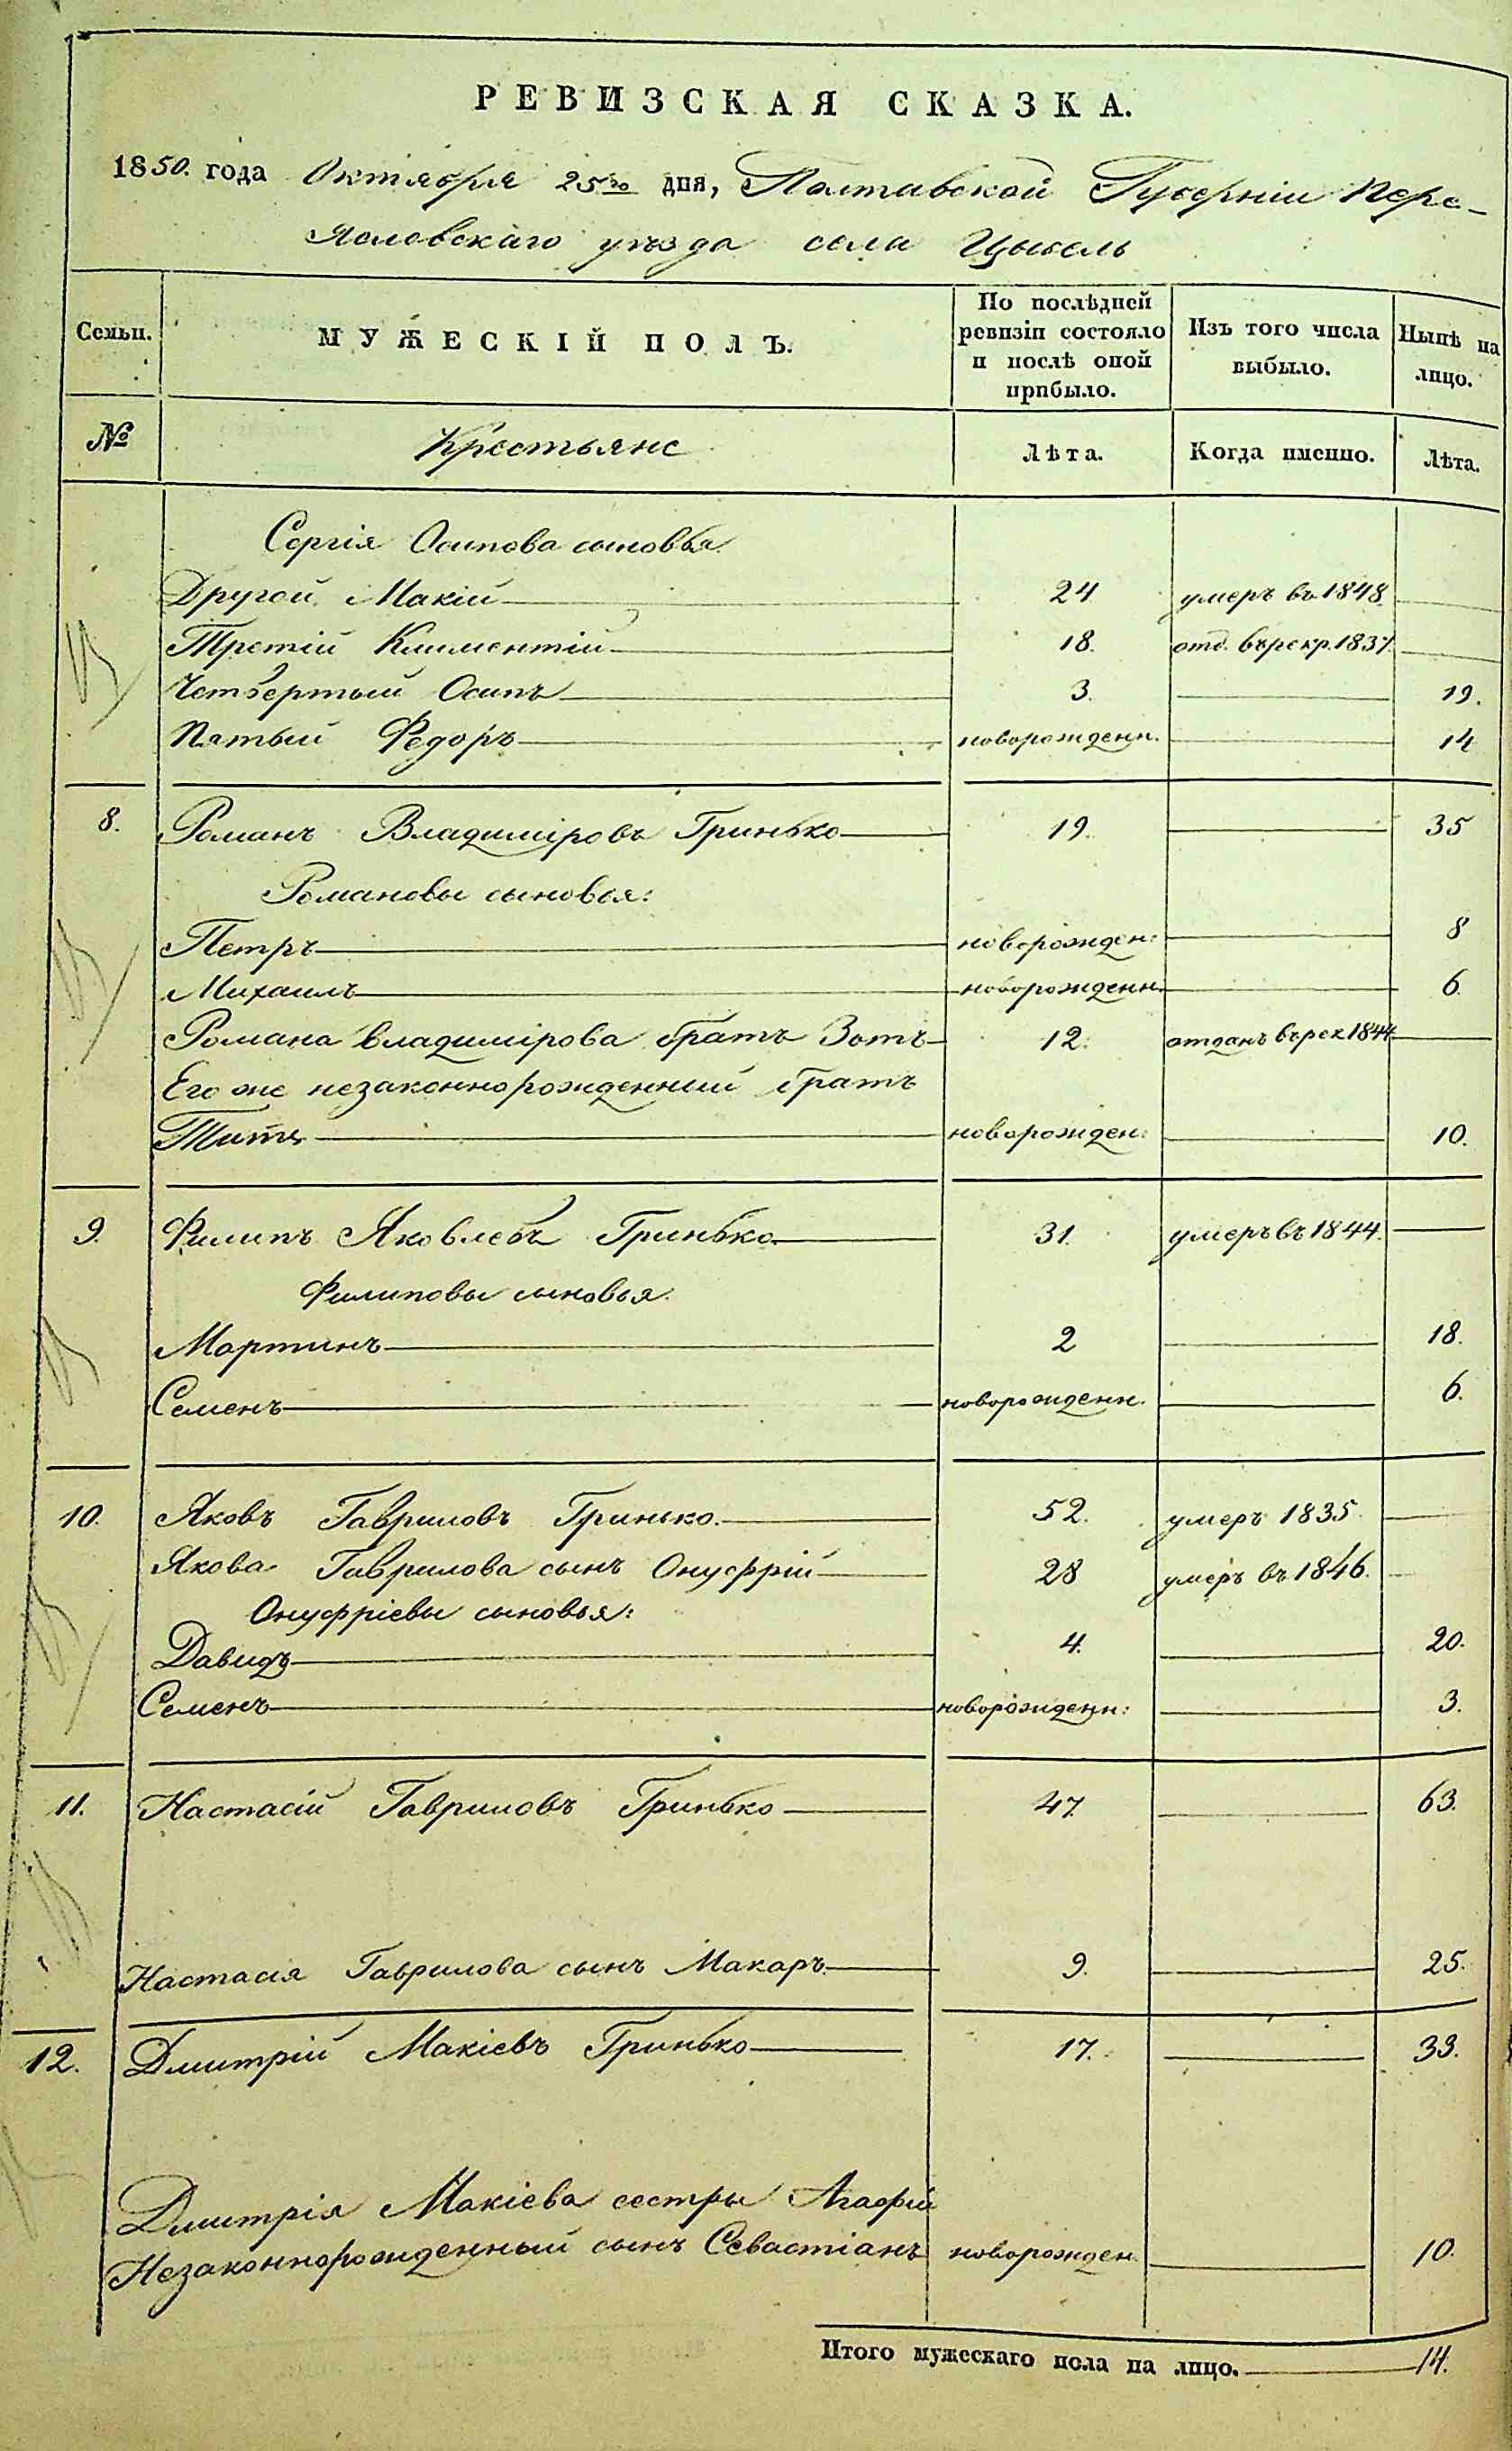 РЕВИЗСКАЯ СКАЗКА.
1850. года Октября 25го дня, Полтавской Губерніи Пере-
яславскаго уѣзда села Цыбель
Семьи.
МУЖЕСКІЙ ПОЛЪ.
По послѣдней ревизіи состояло и послѣ оной прибыло.
Изъ того числа выбыло.
Нынѣ на лицо.
№
Крестьяне
Лѣта.
Когда именно.
Лѣта.
Сергія Осипова сыновья
Другой Макій 24 умеръ въ 1848
Третій Климентій 18. отд. въ рекр. 1837.
Четвертый Осипъ 3. 19.
Пятый Федоръ новорожденн. 14
8. Романъ Владиміровъ Гринько 19. 35
Романовы сыновья:
Петръ новорожден: 8
Михаилъ новорожденн. 6.
Романа Владимірова братъ Зотъ 12. отданъ въ рек 1844
Его же незаконнорожденный братъ
Титъ новорожден: 10.
9. Филипъ Яковлевъ Гринько 31. умеръ въ 1844.
Филиповы сыновья.
Мартинъ 2 18.
Семенъ новорожденн. 6.
10. Яковъ Гавриловъ Гринько. 52. умеръ 1835.
Якова Гаврилова сынъ Онуфрій 28 умеръ въ 1846.
Онуфріевы сыновья:
Давидъ 4. 20.
Семенъ новорожденн: 3.
11. Настасій Гавриловъ Гринько 47. 63.
Настасія Гаврилова сынъ Макаръ 9. 25.
12. Дмитрій Макіевъ Гринько 17. 33.
Дмитрія Макіева сестры Агафіи
Незаконнорожденный сынъ Севастіанъ новорожден. 10.
Итого мужескаго пола на лицо. 14.